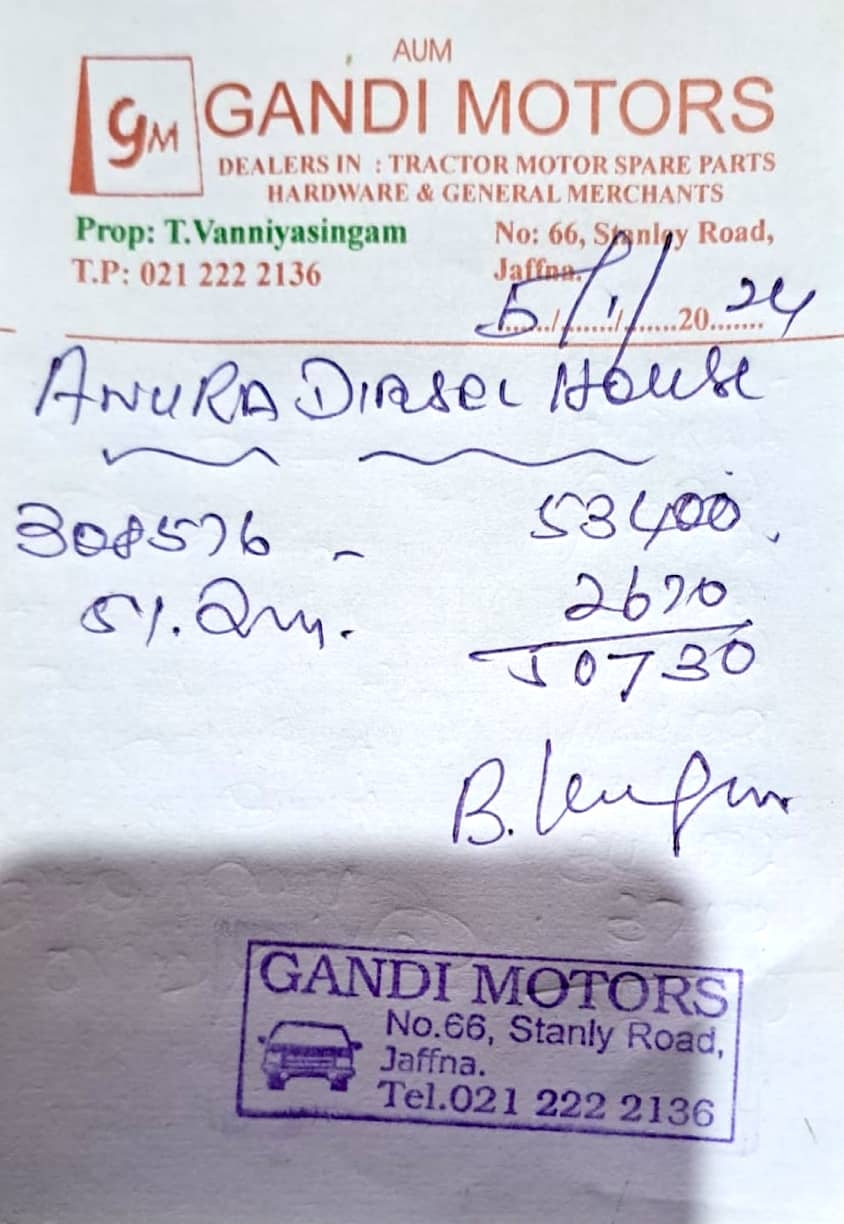 AUM
GM GANDI MOTORS
DEALERS IN : TRACTOR MOTOR SPARE PARTS
HARDWARE & GENERAL MERCHANTS
Prop: T.Vanniyasingam
No: 66, Stanley Road,
T.P: 021 222 2136
Jaffna.
5/1/2024
ANURA DIESEL HOUSE
308576 - 53400.
5%. 2670
50730
B.
GANDI MOTORS
No.66, Stanly Road,
Jaffna.
Tel.021 222 2136